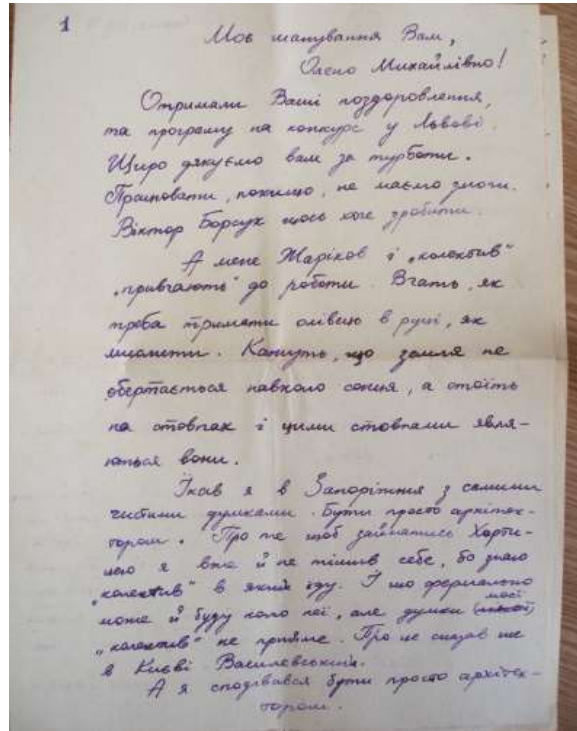 1
Моє шанування Вам,
Олено Михайлівно!
Отримали Ваші поздоровлення,
та програму на конкурс у Львові.
Щиро дякуємо вам за турботи.
Працювати, покищо, не маємо змоги.
Віктор Борсук щось хоче зробити.
А мене Жаріков і „колектив"
„привчають" до роботи. Вчать, як
треба тримати олівець в руці, як
мислити. Кажуть, що земля не
обертається навколо сонця, а стоїть
на стовпах і цими стовпами явля-
ються вони.
Їхав я в Запоріжжя з самими
чистими думками. Бути просто архітек-
тором. Про те щоб займатись Хорти-
цею я вже й не тішив себе, бо знаю
„колектив" в який їду. І що формально
може й буду коло неї, але думки моєї
„колектив" не прийме. Про це сказав ще
в Києві Василевський.
А я сподівався бути просто архітек-
тором.